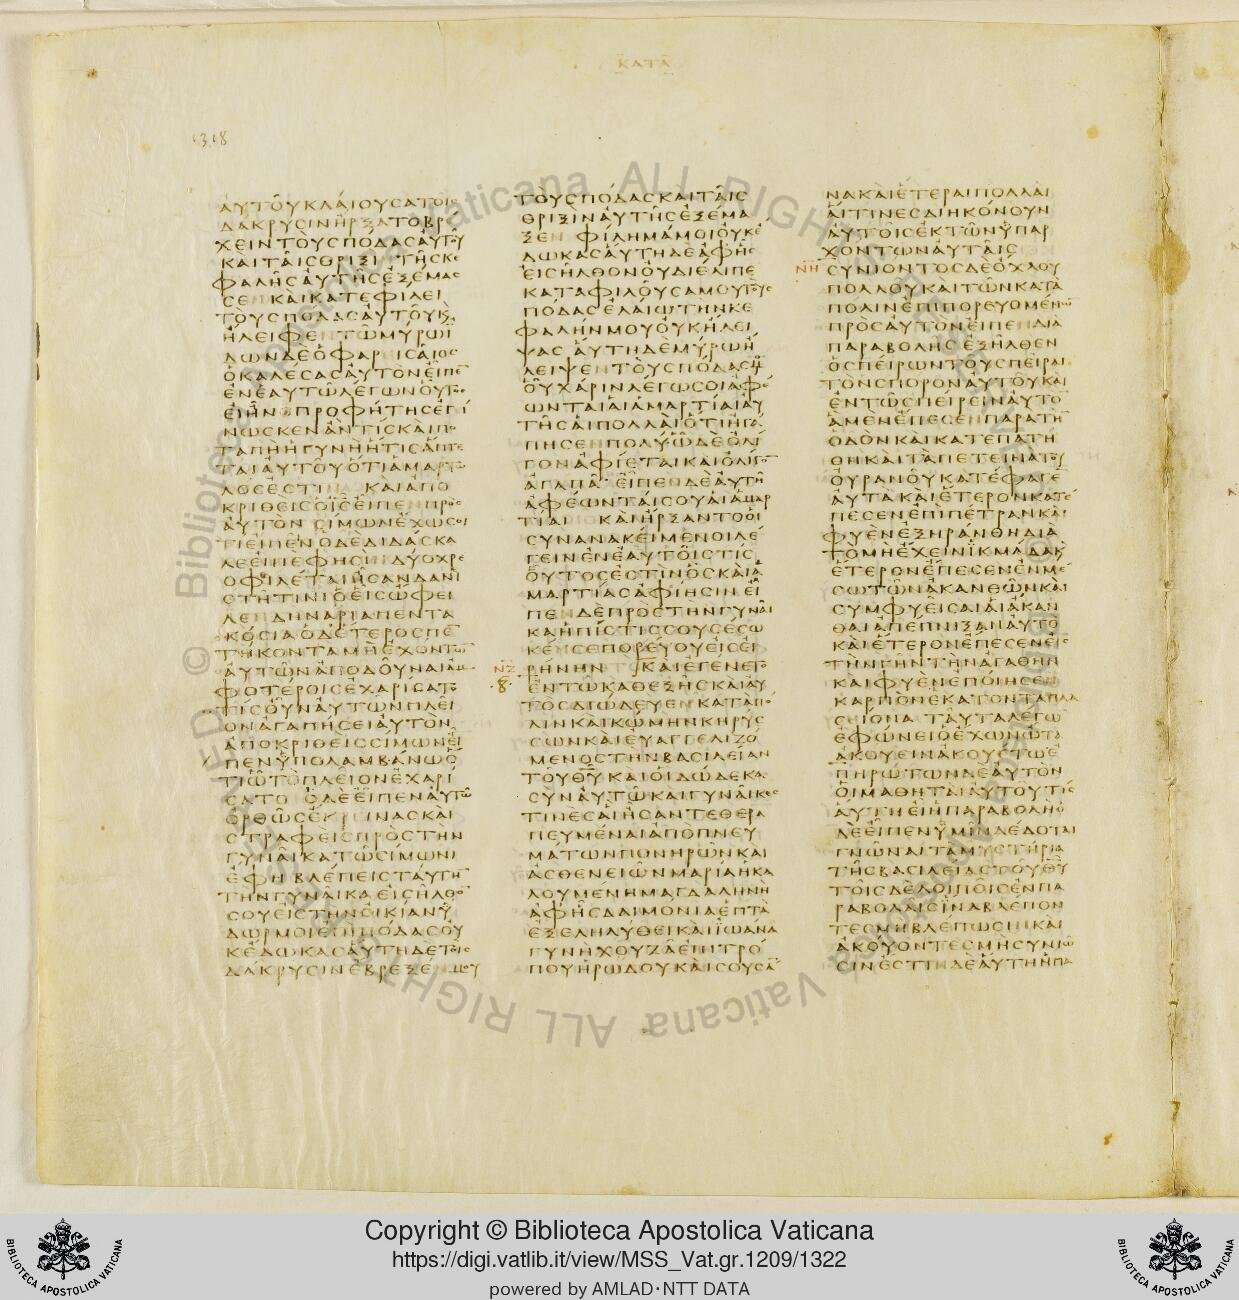 ΚΑΤΑ
1318
ΑΥΤΟΥΚΛΑΙΟΥСΑΤΟΙС
ΔΑΚΡΥСΙΝΗΡΞΑΤΟΒΡΕ
ΧΕΙΝΤΟΥСΠΟΔΑСΑΥΤΟΥ
ΚΑΙΤΑΙСΘΡΙΞΙΤΗСΚΕ
ΦΑΛΗСΑΥΤΗСΕΞΕΜΑС
СΕΝΚΑΙΚΑΤΕΦΙΛΕΙ
ΤΟΥСΠΟΔΑСΑΥΤΟΥΚ
ΗΛΕΙΦΕΝΤΩΜΥΡΩΙ
ΔΩΝΔΕΟΦΑΡΕΙСΑΙΟС
ΟΚΑΛΕСΑСΑΥΤΟΝΕΙΠΕ
ΕΝΕΑΥΤΩΛΕΓΩΝΟΥΤΟС
ΕΙΗΝΟΠΡΟΦΗΤΗСΕΓΙ
ΝΩСΚΕΝΑΝΤΙСΚΑΙΠΟ
ΤΑΠΗΗΓΥΝΗΗΤΙСΑΠΤΕ
ΤΑΙΑΥΤΟΥΟΤΙΑΜΑΡΤΩ
ΛΟСΕСΤΙΝΚΑΙΑΠΟ
ΚΡΙΘΕΙСΟΙСΕΙΠΕΝΠΡΟС
ΑΥΤΟΝСΙΜΩΝΕΧΩСΟΙ
ΤΙΕΙΠΕΙΝΟΔΕΔΙΔΑСΚΑ
ΛΕΕΙΠΕΦΗСΙΝΔΥΟΧΡΕ
ΟΦΙΛΕΤΑΙΗСΑΝΔΑΝΙ
СΤΗΤΙΝΙΟΕΙСΩΦΕΙ
ΛΕΝΔΗΝΑΡΙΑΠΕΝΤΑ
ΚΟСΙΑΟΔΕΕΤΕΡΟСΠΕ
ΤΗΚΟΝΤΑΜΗΕΧΟΝΤΩ
ΑΥΤΩΝΑΠΟΔΟΥΝΑΙΑΜ
ΦΟΤΕΡΟΙСΕΧΑΡΙСΑΤΟ
ΤΙСΟΥΝΑΥΤΩΝΠΛΕΙ
ΟΝΑΓΑΠΗСΕΙΑΥΤΟΝ
ΑΠΟΚΡΙΘΕΙССΙΜΩΝΕΙ
ΠΕΝΥΠΟΛΑΜΒΑΝΩΟ
ΤΙΩΤΟΠΛΕΙΟΝΕΧΑΡΙ
СΑΤΟΟΔΕΕΙΠΕΝΑΥΤΩ
ΟΡΘΩСΕΚΡΕΙΝΑСΚΑΙ
СΤΡΑΦΕΙСΠΡΟСΤΗΝ
ΓΥΝΑΙΚΑΤΩСΙΜΩΝΙ
ΕΦΗΒΛΕΠΕΙСΤΑΥΤΗ
ΤΗΝΓΥΝΑΙΚΑΕΙСΗΛΘΟ
СΟΥΕΙСΤΗΝΟΙΚΙΑΝΥ
ΔΩΡΜΟΙΕΠΙΠΟΔΑСΟΥ
ΚΕΔΩΚΑСΑΥΤΗΔΕΤΟΙС
ΔΑΚΡΥСΙΝΕΒΡΕΞΕΝΜΟΥ
ΤΟΥСΠΟΔΑСΚΑΙΤΑΙС
ΘΡΙΞΙΝΑΥΤΗСΕΞΕΜΑ
ΞΕΝΦΙΛΗΜΑΜΟΙΟΥΚΕ
ΔΩΚΑСΑΥΤΗΔΕΑΦΗС
ΕΙСΗΛΘΟΝΟΥΔΙΕΛΙΠΕ
ΚΑΤΑΦΙΛΟΥСΑΜΟΥΤΟΥС
ΠΟΔΑСΕΛΑΙΩΤΗΝΚΕ
ΦΑΛΗΝΜΟΥΟΥΚΗΛΕΙ
ΨΑСΑΥΤΗΔΕΜΥΡΩΗ
ΛΕΙΨΕΝΤΟΥСΠΟΔΑСΜ
ΟΥΧΑΡΙΝΛΕΓΩСΟΙΑΦΕ
ΩΝΤΑΙΑΙΑΜΑΡΤΙΑΙΑΥ
ΤΗСΑΙΠΟΛΛΑΙΟΤΙΗΓΑ
ΠΗСΕΝΠΟΛΥΩΔΕΟΛΙ
ΓΟΝΑΦΙΕΤΑΙΚΑΙΟΛΙΓΟ
ΑΓΑΠΑΕΙΠΕΝΔΕΑΥΤΗ
ΑΦΕΩΝΤΑΙСΟΥΑΙΑΜΑΡ
ΤΙΑΙΚΑΙΗΡΞΑΝΤΟΟΙ
СΥΝΑΝΑΚΕΙΜΕΝΟΙΛΕ
ΓΕΙΝΕΝΕΑΥΤΟΙСΤΙС
ΟΥΤΟСΕСΤΙΝΟСΚΑΙΑ
ΜΑΡΤΙΑСΑΦΙΗСΙΝΕΙ
ΠΕΝΔΕΠΡΟСΤΗΝΓΥΝΑΙ
ΚΑΗΠΙСΤΙССΟΥСΕСΩ
ΚΕΝСΕΠΟΡΕΥΟΥΕΙСΕΙ
ΝΖ ΡΗΝΗΝΚΑΙΕΓΕΝΕΤΟ
Η ΕΝΤΩΚΑΘΕΞΗСΚΑΙΑΥ
ΤΟСΔΙΩΔΕΥΕΝΚΑΤΑΠΟ
ΛΙΝΚΑΙΚΩΜΗΝΚΗΡΥС
СΩΝΚΑΙΕΥΑΓΓΕΛΙΖΟ
ΜΕΝΟСΤΗΝΒΑСΙΛΕΙΑΝ
ΤΟΥΘΥΚΑΙΟΙΔΩΔΕΚΑ
СΥΝΑΥΤΩΚΑΙΓΥΝΑΙΚΕС
ΤΙΝΕСΑΙΗСΑΝΤΕΘΕΡΑ
ΠΕΥΜΕΝΑΙΑΠΟΠΝΕΥ
ΜΑΤΩΝΠΟΝΗΡΩΝΚΑΙ
ΑСΘΕΝΕΙΩΝΜΑΡΙΑΗΚΑ
ΛΟΥΜΕΝΗΜΑΓΔΑΛΗΝΗ
ΑΦΗСΔΑΙΜΟΝΙΑΕΠΤΑ
ΕΞΕΛΗΛΥΘΕΙΚΑΙΙΩΑΝΑ
ΓΥΝΗΧΟΥΖΑΕΠΙΤΡΟ
ΠΟΥΗΡΩΔΟΥΚΑΙСΟΥСΑ
ΝΑΚΑΙΕΤΕΡΑΙΠΟΛΛΑΙ
ΑΙΤΙΝΕСΔΙΗΚΟΝΟΥΝ
ΑΥΤΟΙСΕΚΤΩΝΥΠΑΡ
ΧΟΝΤΩΝΑΥΤΑΙС
ΝΗ СΥΝΙΟΝΤΟСΔΕΟΧΛΟΥ
ΠΟΛΛΟΥΚΑΙΤΩΝΚΑΤΑ
ΠΟΛΙΝΕΠΙΠΟΡΕΥΟΜΕΝΩ
ΠΡΟСΑΥΤΟΝΕΙΠΕΝΔΙΑ
ΠΑΡΑΒΟΛΗСΕΞΗΛΘΕΝ
ΟСΠΕΙΡΩΝΤΟΥСΠΕΙΡΑΙ
ΤΟΝСΠΟΡΟΝΑΥΤΟΥΚΑΙ
ΕΝΤΩСΠΕΙΡΕΙΝΑΥΤΟ
ΑΜΕΝΕΠΕСΕΝΠΑΡΑΤΗ
ΟΔΟΝΚΑΙΚΑΤΕΠΑΤΗ
ΘΗΚΑΙΤΑΠΕΤΕΙΝΑΤΟΥ
ΟΥΡΑΝΟΥΚΑΤΕΦΑΓΕ
ΑΥΤΑΚΑΙΕΤΕΡΟΝΚΑΤΕ
ΠΕСΕΝΕΠΙΠΕΤΡΑΝΚΑΙ
ΦΥΕΝΕΞΗΡΑΝΘΗΔΙΑ
ΤΟΜΗΕΧΕΙΝΙΚΜΑΔΑΚ
ΕΤΕΡΟΝΕΠΕСΕΝΕΝΜΕ
СΩΤΩΝΑΚΑΝΘΩΝΚΑΙ
СΥΜΦΥΕΙСΑΙΑΙΑΚΑΝ
ΘΑΙΑΠΕΠΝΙΞΑΝΑΥΤΟ
ΚΑΙΕΤΕΡΟΝΕΠΕСΕΝΕΙС
ΤΗΝΓΗΝΤΗΝΑΓΑΘΗΝ
ΚΑΙΦΥΕΝΕΠΟΙΗСΕΝ
ΚΑΡΠΟΝΕΚΑΤΟΝΤΑΠΛΑ
СΕΙΟΝΑΤΑΥΤΑΛΕΓΩ
ΕΦΩΝΕΙΟΕΧΩΝΩΤΑ
ΑΚΟΥΕΙΝΑΚΟΥΕΤΩΕ
ΠΗΡΩΤΩΝΔΕΑΥΤΟΝ
ΟΙΜΑΘΗΤΑΙΑΥΤΟΥΤΙС
ΑΥΤΗΕΙΗΠΑΡΑΒΟΛΗΟ
ΔΕΕΙΠΕΝΥΜΙΝΔΕΔΟΤΑΙ
ΓΝΩΝΑΙΤΑΜΥСΤΗΡΙΑ
ΤΗСΒΑСΙΛΕΙΑСΤΟΥΘΥ
ΤΟΙСΔΕΛΟΙΠΟΙСΕΝΠΑ
ΡΑΒΟΛΑΙСΙΝΑΒΛΕΠΟΝ
ΤΕСΜΗΒΛΕΠΩСΙΝΚΑΙ
ΑΚΟΥΟΝΤΕСΜΗСΥΝΙΩ
СΙΝΕСΤΙΝΔΕΑΥΤΗΗΠΑ
Copyright © Biblioteca Apostolica Vaticana
https://digi.vatlib.it/view/MSS_Vat.gr.1209/1322
powered by AMLAD·NTT DATA
BIBLIOTECA APOSTOLICA VATICANA
BIBLIOTECA APOSTOLICA VATICANA